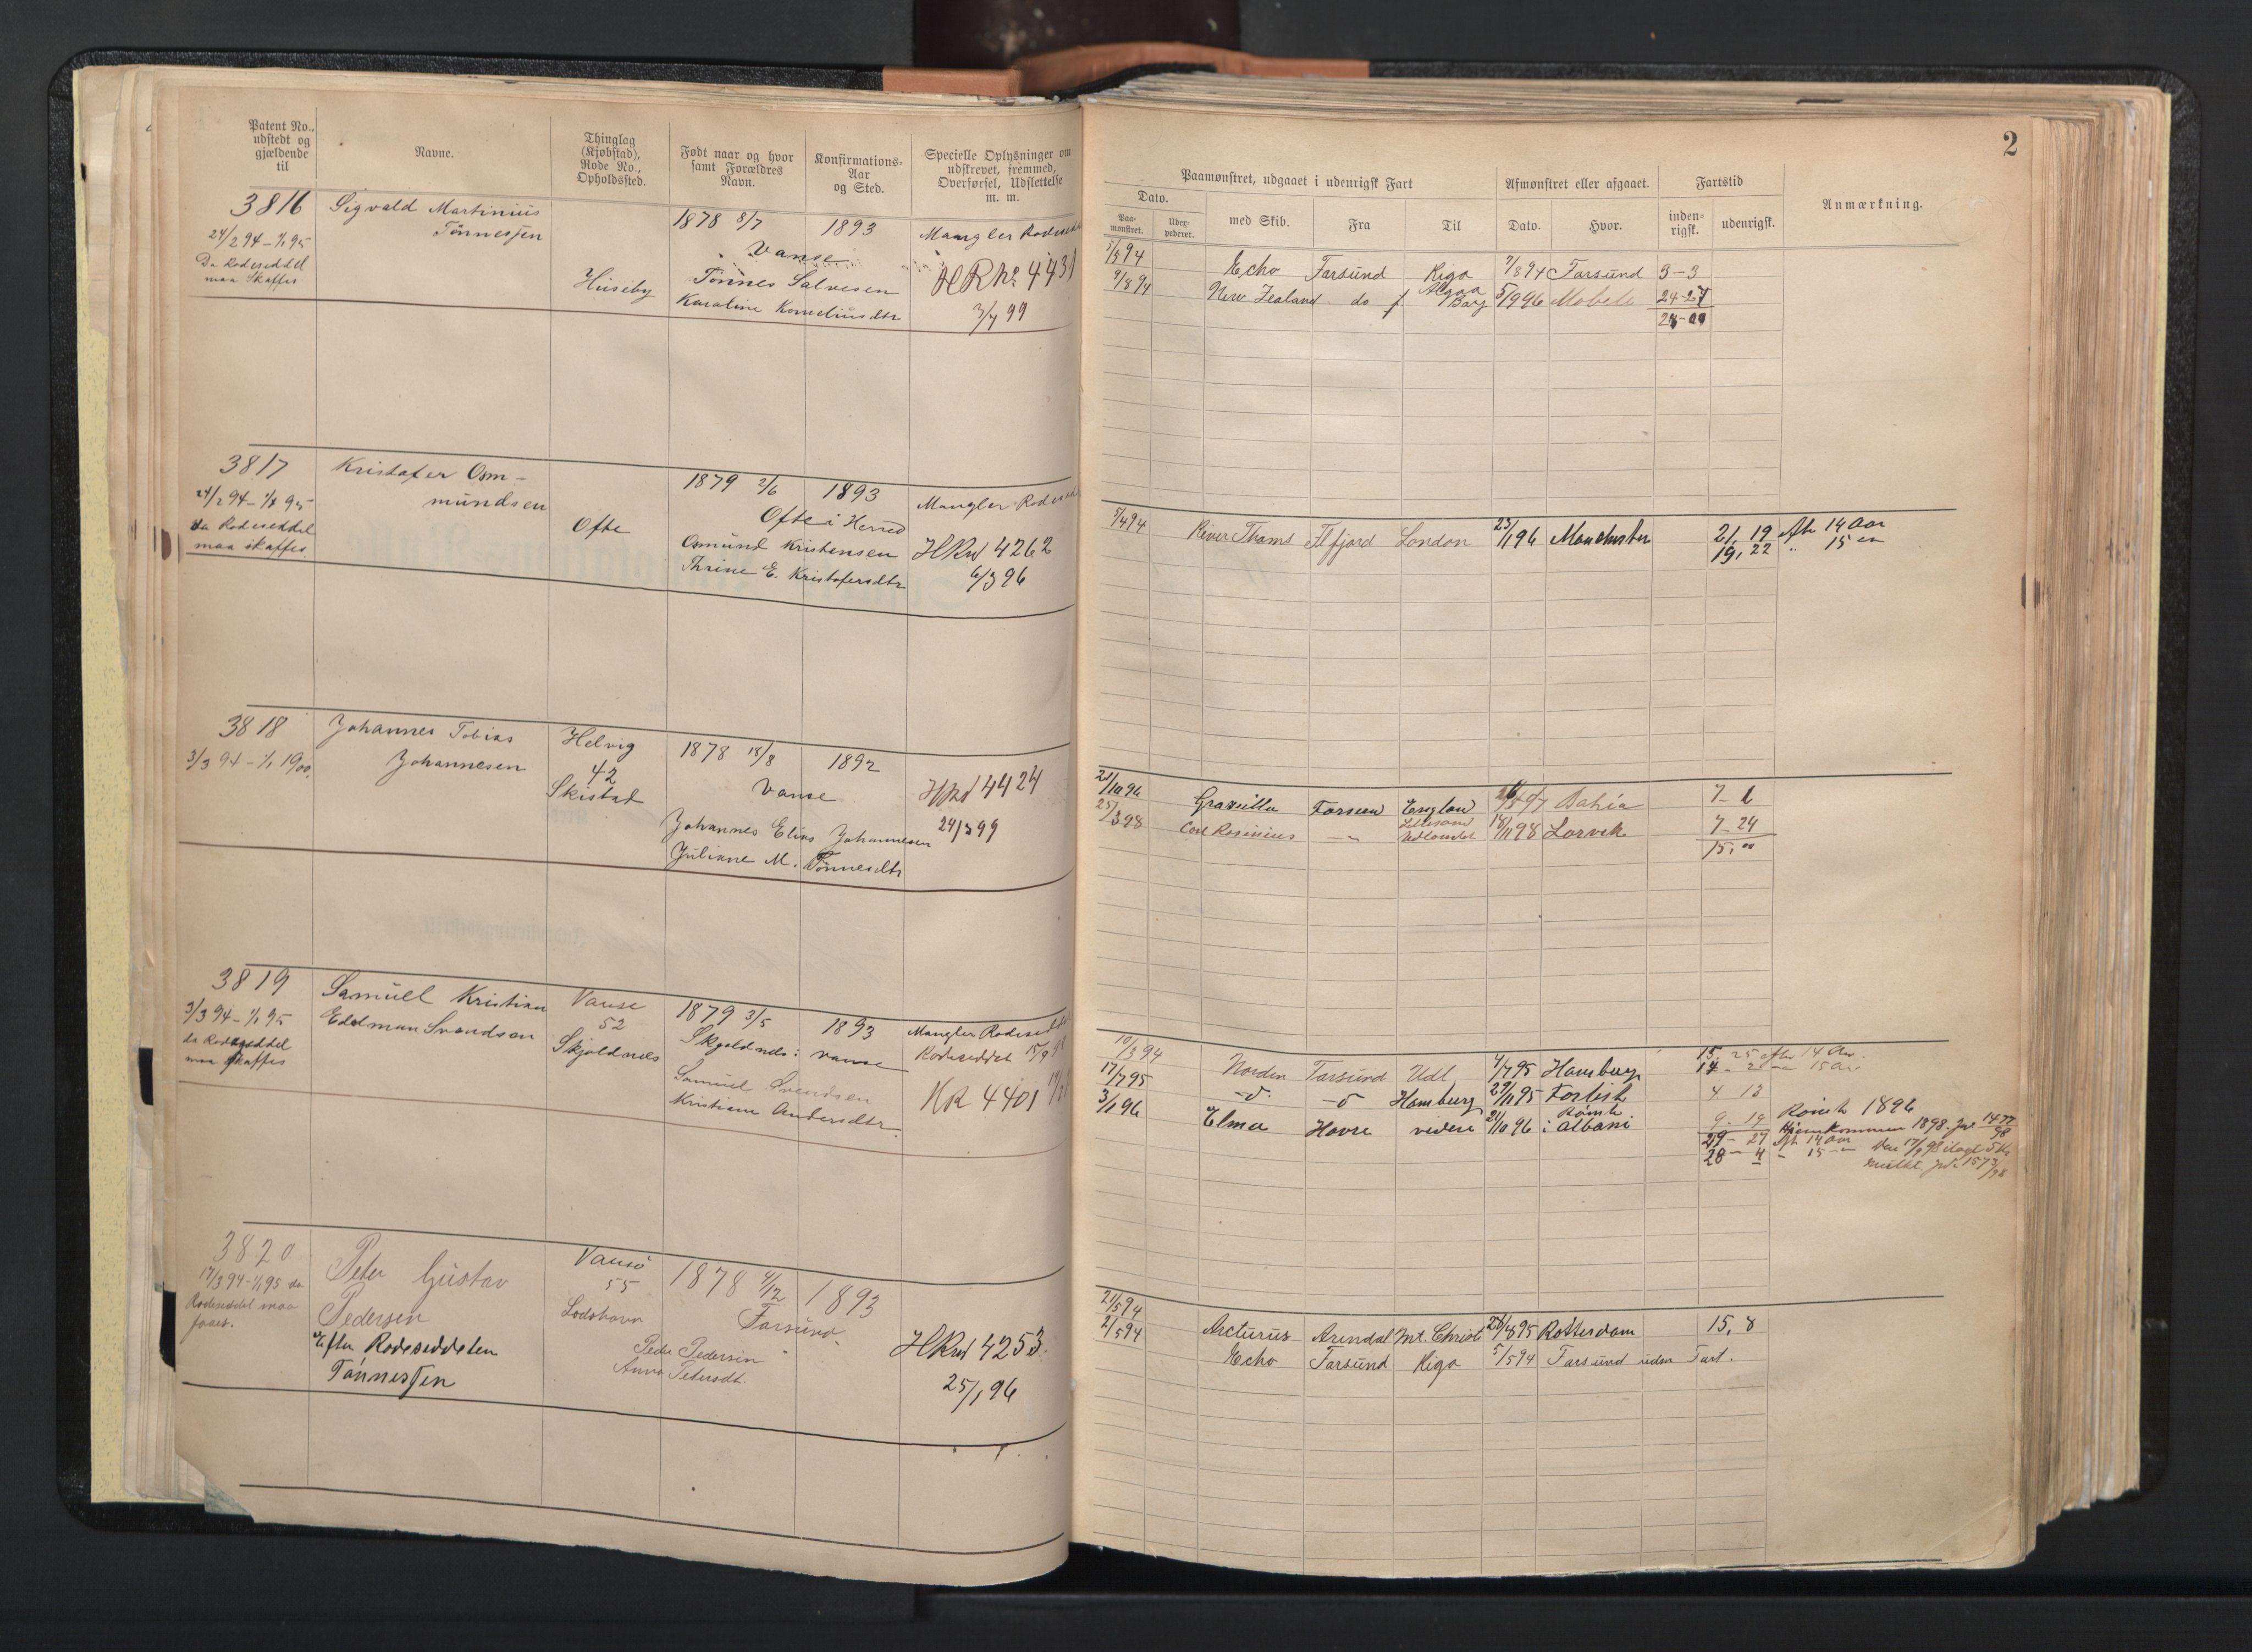 Patent No.,
udstedt og
gjældende
til
Navne.
Thinglag
(Kjøbstad),
Rode No.,
Opholdssted.
Født naar og hvor
samt Forældres
Navn.
Konfirmations-
Aar
og Sted.
Specielle Oplysninger om
udskrevet, fremmed,
Overførsel, Udslettelse
m. m.
3816
24/2 94 – 1/1 95
Da Rodeseddel
maa skaffes
Sigvald Martinius
Tönnessen
Huseby
1878 8/7 1893
Vanse
Tönnes Salvesen
Karaline Korneliusdtr
Mangler Rodeseddel
HR No 4431
3/7 99
3817
24/2 94 – 1/1 95
da Rodeseddel
maa skaffes
Kristofer Osm-
mundsen
Ofte
1879 2/6 1893
Ofte i Herred
Osmund Kristensen
Thrine E. Kristofersdtr
Mangler Rodeseddel
HRul 4262
6/3 96
3818
3/3 94 – 1/1 1900.
Johannes Tobias
Johannesen
Helvig
42
Skistad
1878 18/8 1892
Vanse
Johannes Elias Johannesen
Juliane M. Tönnesdtr
HRul 4424
24/3 99
3819
3/3 94 – 1/1 95
da Rodeseddel
maa skaffes
Samuel Kristian
Edelman Svendsen
Vanse
52
Skjoldnes
1879 3/5 1893
Skjoldnes i Vanse
Samuel Svendsen
Kristiane Andersdtr.
Mangler Rodeseddel
Rodeseddel 15/9 98
HR 4401
3820
17/3 94 – 1/1 95 da
Rodeseddel maa
faaes.
Peter Gustav
Pedersen
Efter Rodeseddelen
Tönnessen
Vanse
55
Lodshavn
1878 4/12 1893
Farsund
Peder Pedersen
Anna Petersdt.
HRul 4253
25/1 96
2
Paamønstret, udgaaet i udenrigsk Fart
Afmønstret eller afgaaet.
Fartstid
Anmærkning.
Dato.
Paa-
mønstret.
Uder-
pederet.
med Skib.
Fra
Til
Dato.
Hvor.
inden-
rigsk.
udenrigsk.
5/5 94 Echo Farsund Riga 7/8 94 Farsund 3–3
9/8 94 New Zealand do Algoa Bay 5/9 96 Mobile 24–27
28–00
5/4 94 River Thams Flfjord London 23/1 96 Manchester 21, 19 Aft 14 Aar
19, 22 " 15 "
21/10 96 Graziella Farsund England Bahia 7–6
25/3 98 Carl Rosinius –"– Lillesand Udlandet 18/11 98 Larvik 7–24
15,00
10/3 94 Norden Farsund Udl 4/7 95 Hamburg 15. 25 efter 14 Aar.
17/7 95 –d– –d– Hamburg 29/11 95 Forlist 4 13
3/1 96 Elma Havre videre 21/10 96 Rømte i Albani 9–19 Rømt 1896
Hjemkommen 1898. Jnl 1477/98
29–27 Aft 14 Aar
28–4 " 15
21/5 94 Arcturus Arendal Mt. Christi 28/8 95 Rotterdam 15, 8
2/5 94 Echo Farsund Riga 5/5 94 Farsund uden Fart.